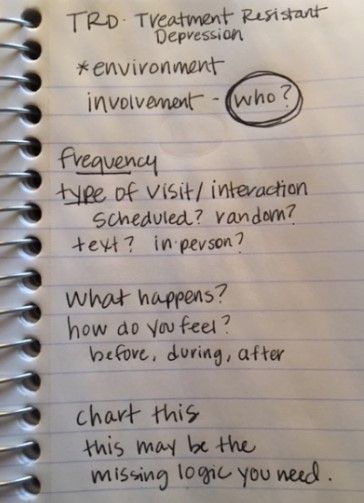 TRD. Treatment Resistant
Depression
*environment
involvement - who?
frequency
type of visit/interaction
scheduled? random?
text? in-person?
What happens?
how do you feel?
before, during, after
chart this
this may be the
missing logic you need.